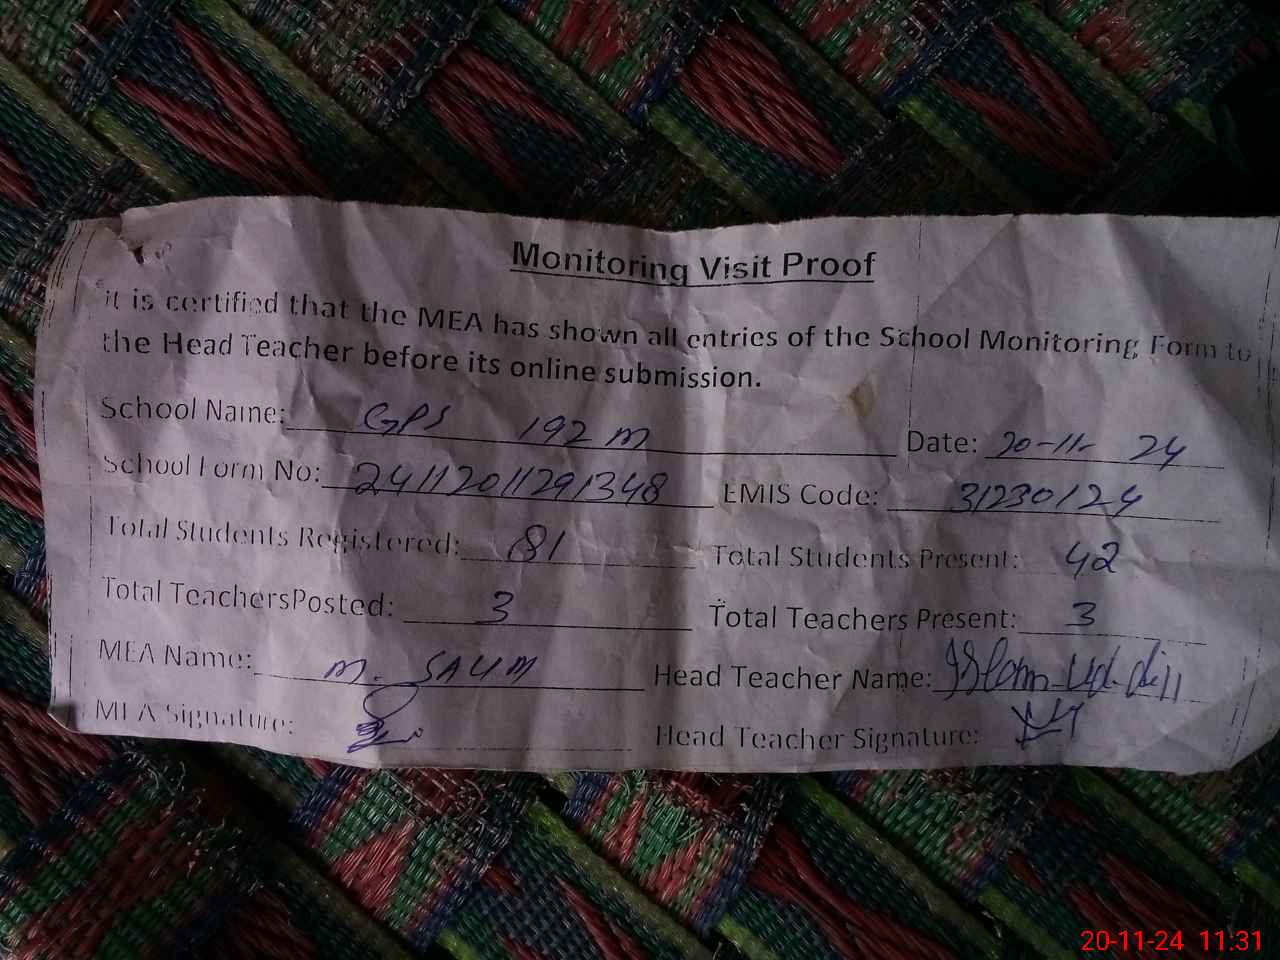 Monitoring Visit Proof
it is certified that the MEA has shown all entries of the School Monitoring Form to
the Head Teacher before its online submission.
School Name: GPS 192 M Date: 20-11-24
School Form No: 24112011291348 EMIS Code: 31230124
Total Students Registered: 81 Total Students Present: 42
Total TeachersPosted: 3 Total Teachers Present: 3
MEA Name: M. SALIM Head Teacher Name: Islam-Ud-din
MEA Signature: Head Teacher Signature:
20-11-24 11:31